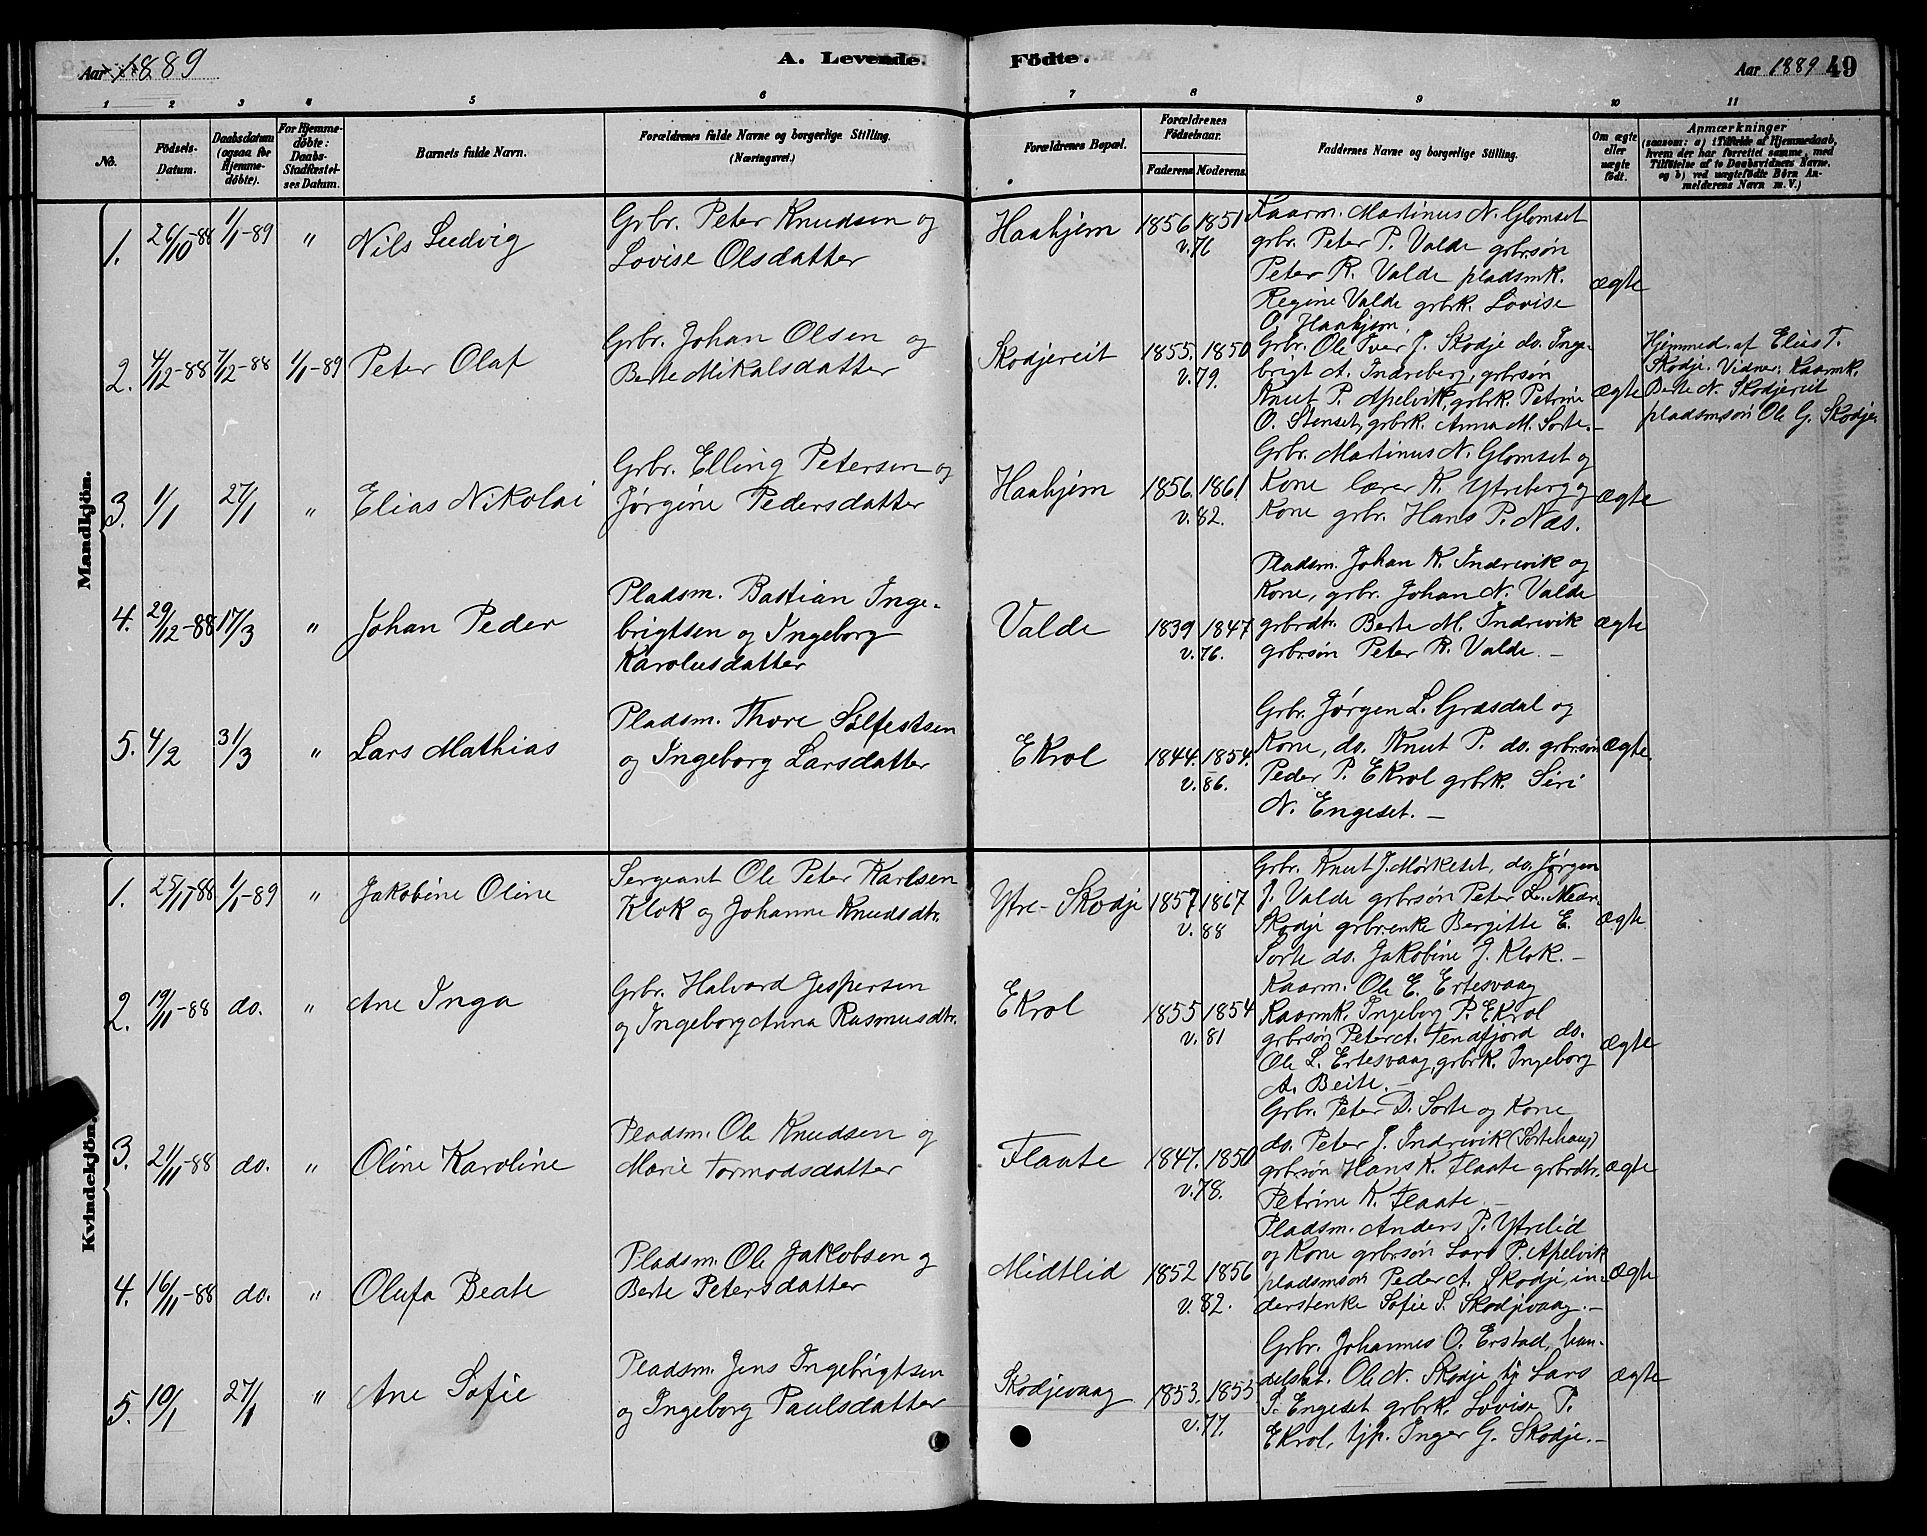 Aar 1889
A. Levende
Födte.
Aar 1889 49
1 2 3 4 5 6 7 8 9 10 11
No.
Födsels-
Datum.
Daabsdatum
(ogsaa for
Hjemme-
döbte).
For Hjemme-
döbte:
Daabs-
Stadfæstel-
ses Datum.
Barnets fulde Navn.
Forældrenes fulde Navne og borgerlige Stilling.
(Næringsvei.)
Forældrenes Bopæl.
Forældrenes
Födselsaar.
Faderens Moderens
Faddernes Navne og borgerlige Stilling.
Om ægte
eller
uægte
födt.
Anmærkninger
(saasom: a) i Tilfælde af Hjemmedaab,
hvem der har forrettet samme, med
Tilföielse af to Daabsvidners Navne,
og b) ved uægtefödte Börn An-
melderens Navn m. V.)
Mandkjön.
1. 26/10-88 1/1-89 " Nils Ludvig
Grbr. Peter Knudsen og
Lovise Olsdatter
Haahjem 1856 1851
v. 76
Kaarm. Martinus N. Glomset
grbr. Peter P. Valde grbrsøn
Peter R. Valde pladsmk.
Regine Valde grbrk. Lovise
O. Haahjem.
ægte
2. 4/12-88 7/12-88 1/1-89 Peter Olaf
Grbr. Johan Olsen og
Berte Mikalsdatter
Skodjereit 1855. 1850
v. 79.
Grbr. Ole Iver J. Skodje do. Inge-
brigt A. Indreberg, grbrsøn
Knut P. Apelvik, grbrk. Petrine
O. Stenset, grbrk. Anna M. Sorte.-
ægte
Hjemmed. af Elias T.
Skodje. Vidner: Kaarmk.
Berte N. Skodjereit
pladsmsøn Ole G. Skodje
3. 1/1 27/1 " Elias Nikolai
Grbr. Elling Petersen og
Jørgine Pedersdatter
Haahjem 1856. 1861
v. 82.
Grbr. Martinus N. Glomset og
Kone lærer K. Ytreberg og
Kone grbr. Hans P. Næs.
ægte
4. 29/12-88 17/3 " Johan Peder
Pladsm. Bastian Inge-
brigtsen og Ingeborg
Karolusdatter
Valde 1839 1847
v. 76.
Pladsm. Johan K. Indrevik og
Kone, grbr. Johan N. Valde
grbrdtr. Berte M. Indrevik
grbrsøn Peter R. Valde. -
ægte
5. 4/2 31/3 " Lars Mathias
Pladsm. Thore Sølfestsen
og Ingeborg Larsdatter
Ekrol 1844. 1854.
v. 86.
Grbr. Jørgen L. Græsdal og
Kone, do. Knut P. do. grbrsøn
Peder P. Ekrol grbrk. Siri
N. Engeset. -
ægte
Kvindekjön.
1. 25/11-88 1/1-89 " Jakobine Oline
Sergeant Ole Peter Karlsen
Klok og Johanne Knudsdtr.
Ytre-Skodje 1857 1867
v. 88
Grbr. Knut J. Mørkeset, do. Jørgen
J. Valde grbrsøn Peter L. Nedre
Skodje grbrenke Bergitte E.
Sorte do. Jakobine J. Klok. -
ægte
2. 19/11-88 do. " Ane Inga
Grbr. Halvard Jespersen
og Ingeborg Anna Rasmusdtr.
Ekrol 1855 1854
v. 81
Kaarm. Ole E. Ertesvaag
Kaarmk. Ingeborg P. Ekrol
grbrsøn Peter A. Tenfjord do.
Ole L. Ertesvaag, grbrk. Ingeborg
A. Beite. -
ægte
3. 21/11-88 do. " Oline Karoline
Pladsm. Ole Knudsen og
Marie Tormodsdatter
Flaate 1847. 1850
v. 78.
Grbr. Peter D. Sorte og Kone
do. Peter J. Indrevik (Sortehaug)
grbrsøn Hans K. Flaate grbrdtr.
Petrine K. Flaate. -
ægte
4. 16/11-88 do. " Olufa Beate
Pladsm. Ole Jakobsen og
Berte Petersdatter
Midtlid 1852 1856
v. 82.
Pladsm. Anders P. Ytrelid
og Kone grbrsøn Lars P. Apelvik
pladsmsøn Peder A. Skodje, in-
derstenke Sofie S. Skodjevaag. -
ægte
5. 10/1 27/1 " Ane Sofie
Pladsm. Jens Ingebrigtsen
og Ingeborg Paulsdatter
Skodjevaag 1853. 1855
v. 77.
Grbr. Johannes O. Erstad, han-
delsbt. Ole N. Skodje tj. Lars
S. Engeset grbrk. Lovise P.
Ekrol, tjp. Inger G. Skodje. -
ægte